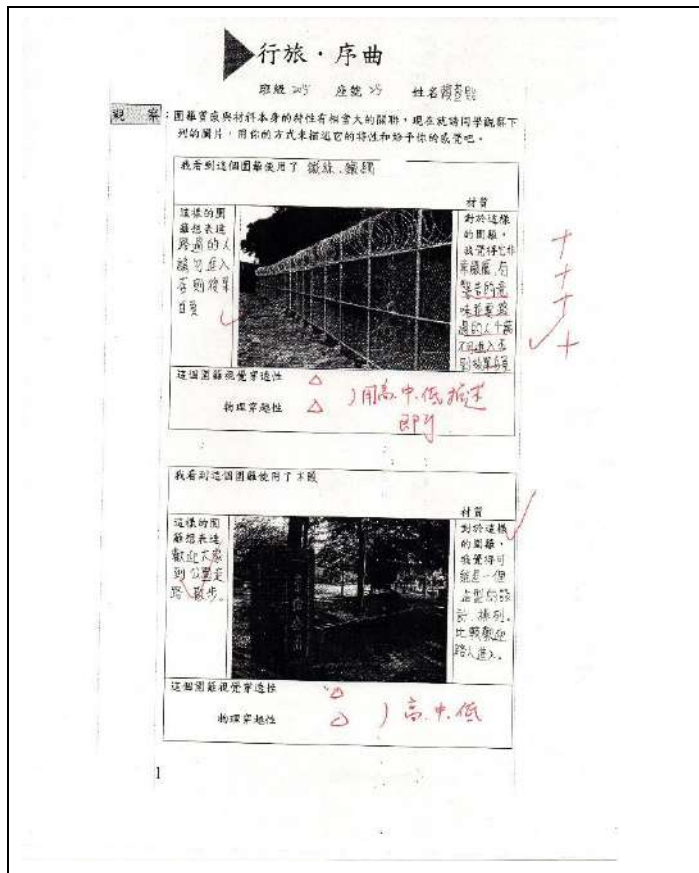 行旅・序曲
班級 205 座號 25 姓名
觀 察：圍籬質感與材料本身的特性有相當大的關聯，現在就請同學觀察下
列的圖片，用你的方式來描述它的特性和給予你的感覺吧。
我看到這個圍籬使用了 鐵絲、鐵網
材質
這樣的圍
籬想表達
路過的人
請勿進入
否則後果
自負
對於這樣
的圍籬，
我覺得它非
常嚴厲,有
警告的意
味並要路
過的人千萬
不可進入否
則後果自負
這個圍籬視覺穿透性 △
物理穿越性 △
)用高.中.低描述
即可
我看到這個圍籬使用了木頭
材質
這樣的圍
籬想表達
歡迎大家
到公園走
路、散步。
對於這樣
的圍籬，
我覺得可
能是一個
造型的設
計、排列。
比較歡迎
路人進入。
這個圍籬視覺穿透性 △
物理穿越性 △
)高.中.低
1